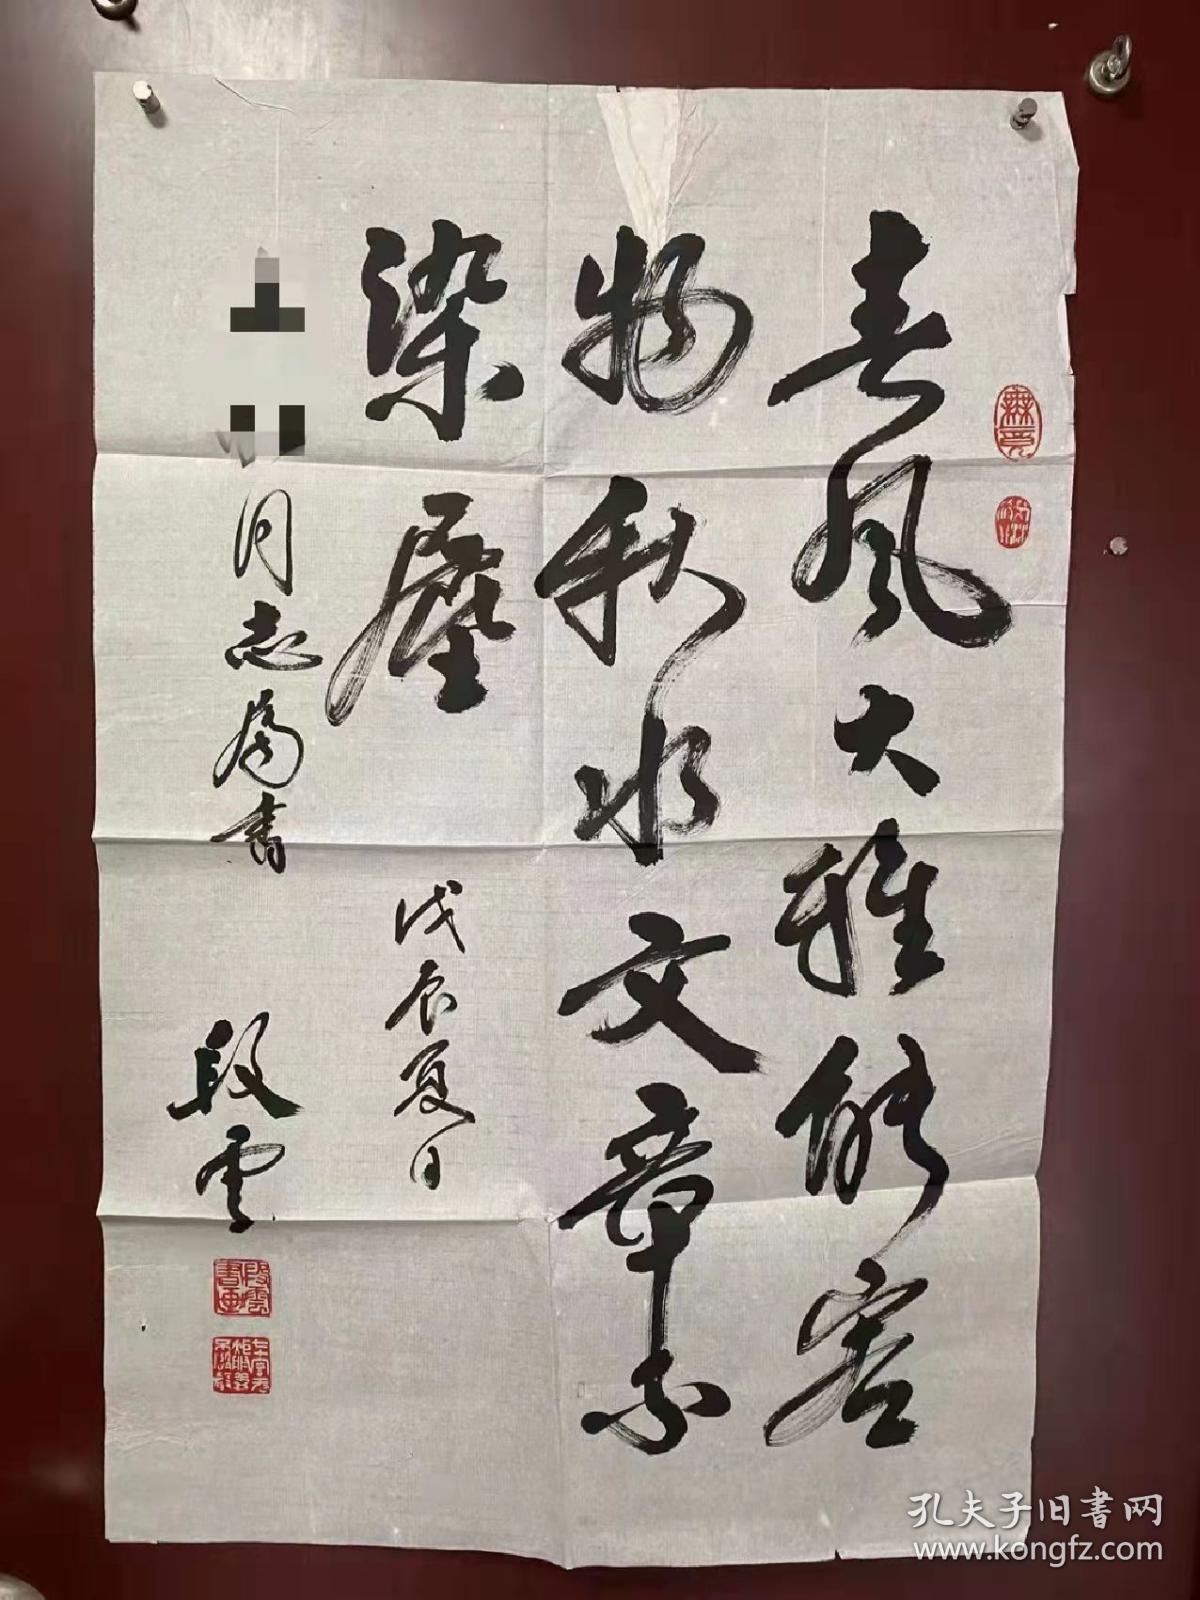 春风大雅能容
物秋水文章不
染尘
同志属书
戊辰夏日
段云
段雲書画
孔夫子旧书网
www.kongfz.com